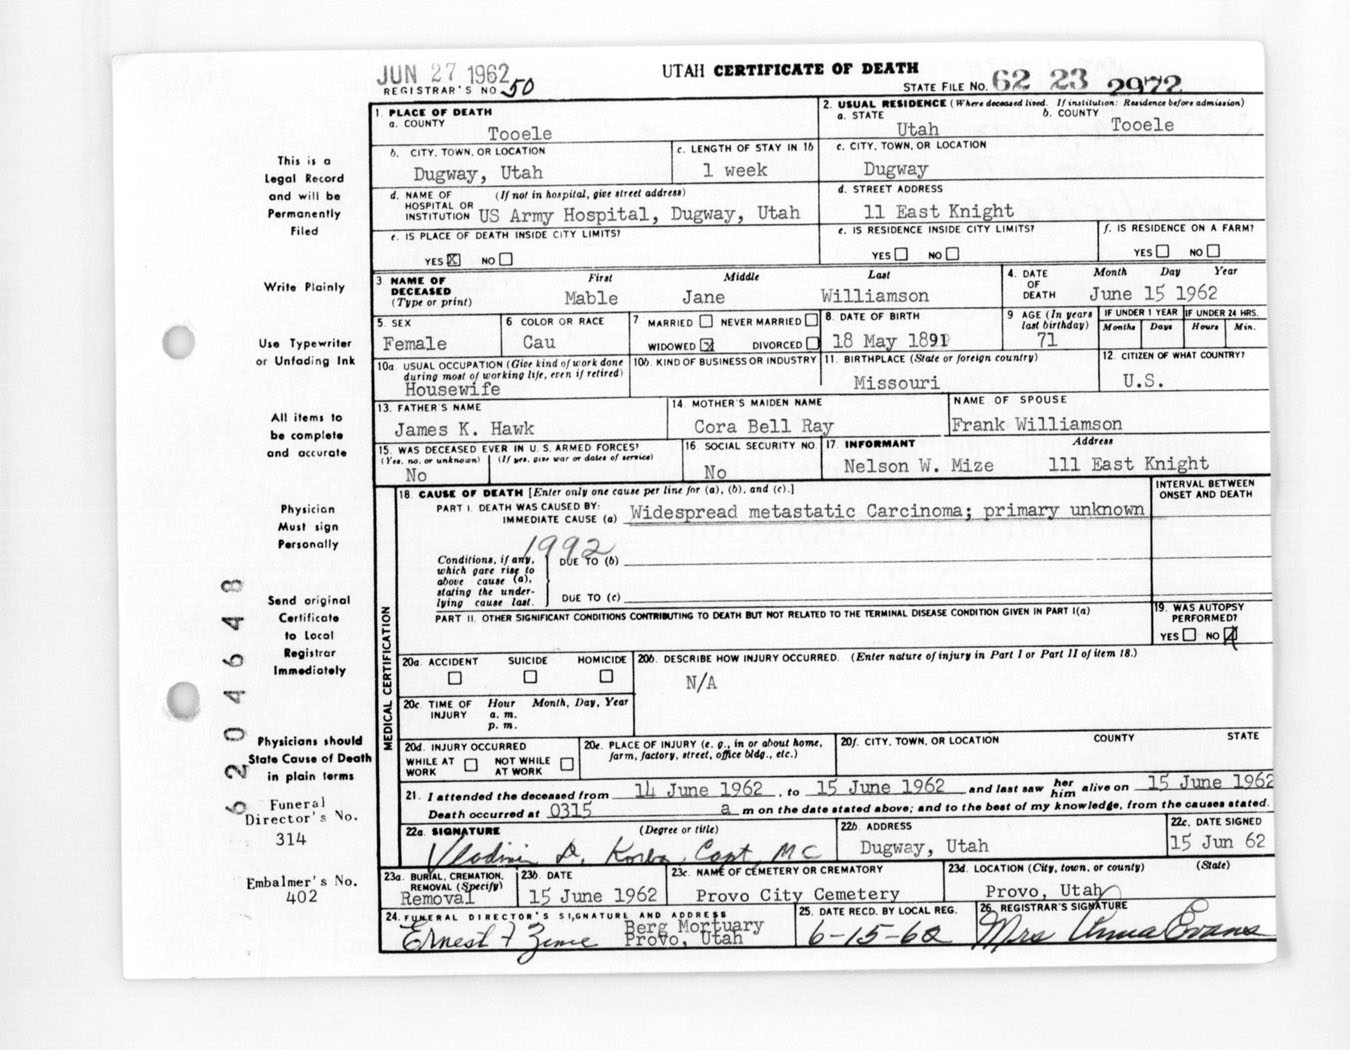 JUN 27 1962
UTAH CERTIFICATE OF DEATH
REGISTRAR'S NO. 50
STATE FILE NO. 62 23 2972
This is a Legal Record and will be Permanently Filed
Write Plainly
Use Typewriter or Unfading Ink
All items to be complete and accurate
Physician Must sign Personally
Send original Certificate to Local Registrar Immediately
Physicians should State Cause of Death in plain terms
Funeral Director's No. 314
Embalmer's No. 402
6204648
1. PLACE OF DEATH
a. COUNTY Tooele
2. USUAL RESIDENCE (Where deceased lived. If institution: Residence before admission)
a. STATE Utah b. COUNTY Tooele
b. CITY, TOWN, OR LOCATION Dugway, Utah
c. LENGTH OF STAY IN 1b 1 week
c. CITY, TOWN, OR LOCATION Dugway
d. NAME OF HOSPITAL OR INSTITUTION (If not in hospital, give street address) US Army Hospital, Dugway, Utah
d. STREET ADDRESS 11 East Knight
e. IS PLACE OF DEATH INSIDE CITY LIMITS?
YES X NO
e. IS RESIDENCE INSIDE CITY LIMITS?
YES NO
f. IS RESIDENCE ON A FARM?
YES NO
3. NAME OF DECEASED (Type or print)
First Middle Last
Mable Jane Williamson
4. DATE OF DEATH Month Day Year
June 15 1962
5. SEX Female
6. COLOR OR RACE Cau
7. MARRIED NEVER MARRIED
WIDOWED X DIVORCED
8. DATE OF BIRTH 18 May 1891
9. AGE (In years last birthday) 71
IF UNDER 1 YEAR Months Days
IF UNDER 24 HRS. Hours Min.
10a. USUAL OCCUPATION (Give kind of work done during most of working life, even if retired) Housewife
10b. KIND OF BUSINESS OR INDUSTRY
11. BIRTHPLACE (State or foreign country) Missouri
12. CITIZEN OF WHAT COUNTRY? U.S.
13. FATHER'S NAME James K. Hawk
14. MOTHER'S MAIDEN NAME Cora Bell Ray
NAME OF SPOUSE Frank Williamson
15. WAS DECEASED EVER IN U. S. ARMED FORCES?
(Yes, no, or unknown) (If yes, give war or dates of service)
No
16. SOCIAL SECURITY NO. No
17. INFORMANT Address
Nelson W. Mize 111 East Knight
MEDICAL CERTIFICATION
18. CAUSE OF DEATH [Enter only one cause per line for (a), (b), and (c).]
INTERVAL BETWEEN ONSET AND DEATH
PART I. DEATH WAS CAUSED BY:
IMMEDIATE CAUSE (a) Widespread metastatic Carcinoma; primary unknown
1992
Conditions, if any, which gave rise to above cause (a), stating the underlying cause last.
DUE TO (b)
DUE TO (c)
PART II. OTHER SIGNIFICANT CONDITIONS CONTRIBUTING TO DEATH BUT NOT RELATED TO THE TERMINAL DISEASE CONDITION GIVEN IN PART I(a)
19. WAS AUTOPSY PERFORMED?
YES NO
20a. ACCIDENT SUICIDE HOMICIDE
20b. DESCRIBE HOW INJURY OCCURRED. (Enter nature of injury in Part I or Part II of item 18.)
N/A
20c. TIME OF INJURY Hour Month, Day, Year
a. m.
p. m.
20d. INJURY OCCURRED
WHILE AT WORK NOT WHILE AT WORK
20e. PLACE OF INJURY (e. g., in or about home, farm, factory, street, office bldg., etc.)
20f. CITY, TOWN, OR LOCATION COUNTY STATE
21. I attended the deceased from 14 June 1962, to 15 June 1962 and last saw her him alive on 15 June 1962
Death occurred at 0315 a m on the date stated above; and to the best of my knowledge, from the causes stated.
22a. SIGNATURE (Degree or title)
Vladimir D. Korba, Capt, MC
22b. ADDRESS Dugway, Utah
22c. DATE SIGNED 15 Jun 62
23a. BURIAL, CREMATION, REMOVAL (Specify) Removal
23b. DATE 15 June 1962
23c. NAME OF CEMETERY OR CREMATORY Provo City Cemetery
23d. LOCATION (City, town, or county) (State)
Provo, Utah
24. FUNERAL DIRECTOR'S SIGNATURE AND ADDRESS
Berg Mortuary
Ernest F Provo, Utah
25. DATE RECD. BY LOCAL REG. 6-15-62
26. REGISTRAR'S SIGNATURE
Mrs Anna Evans